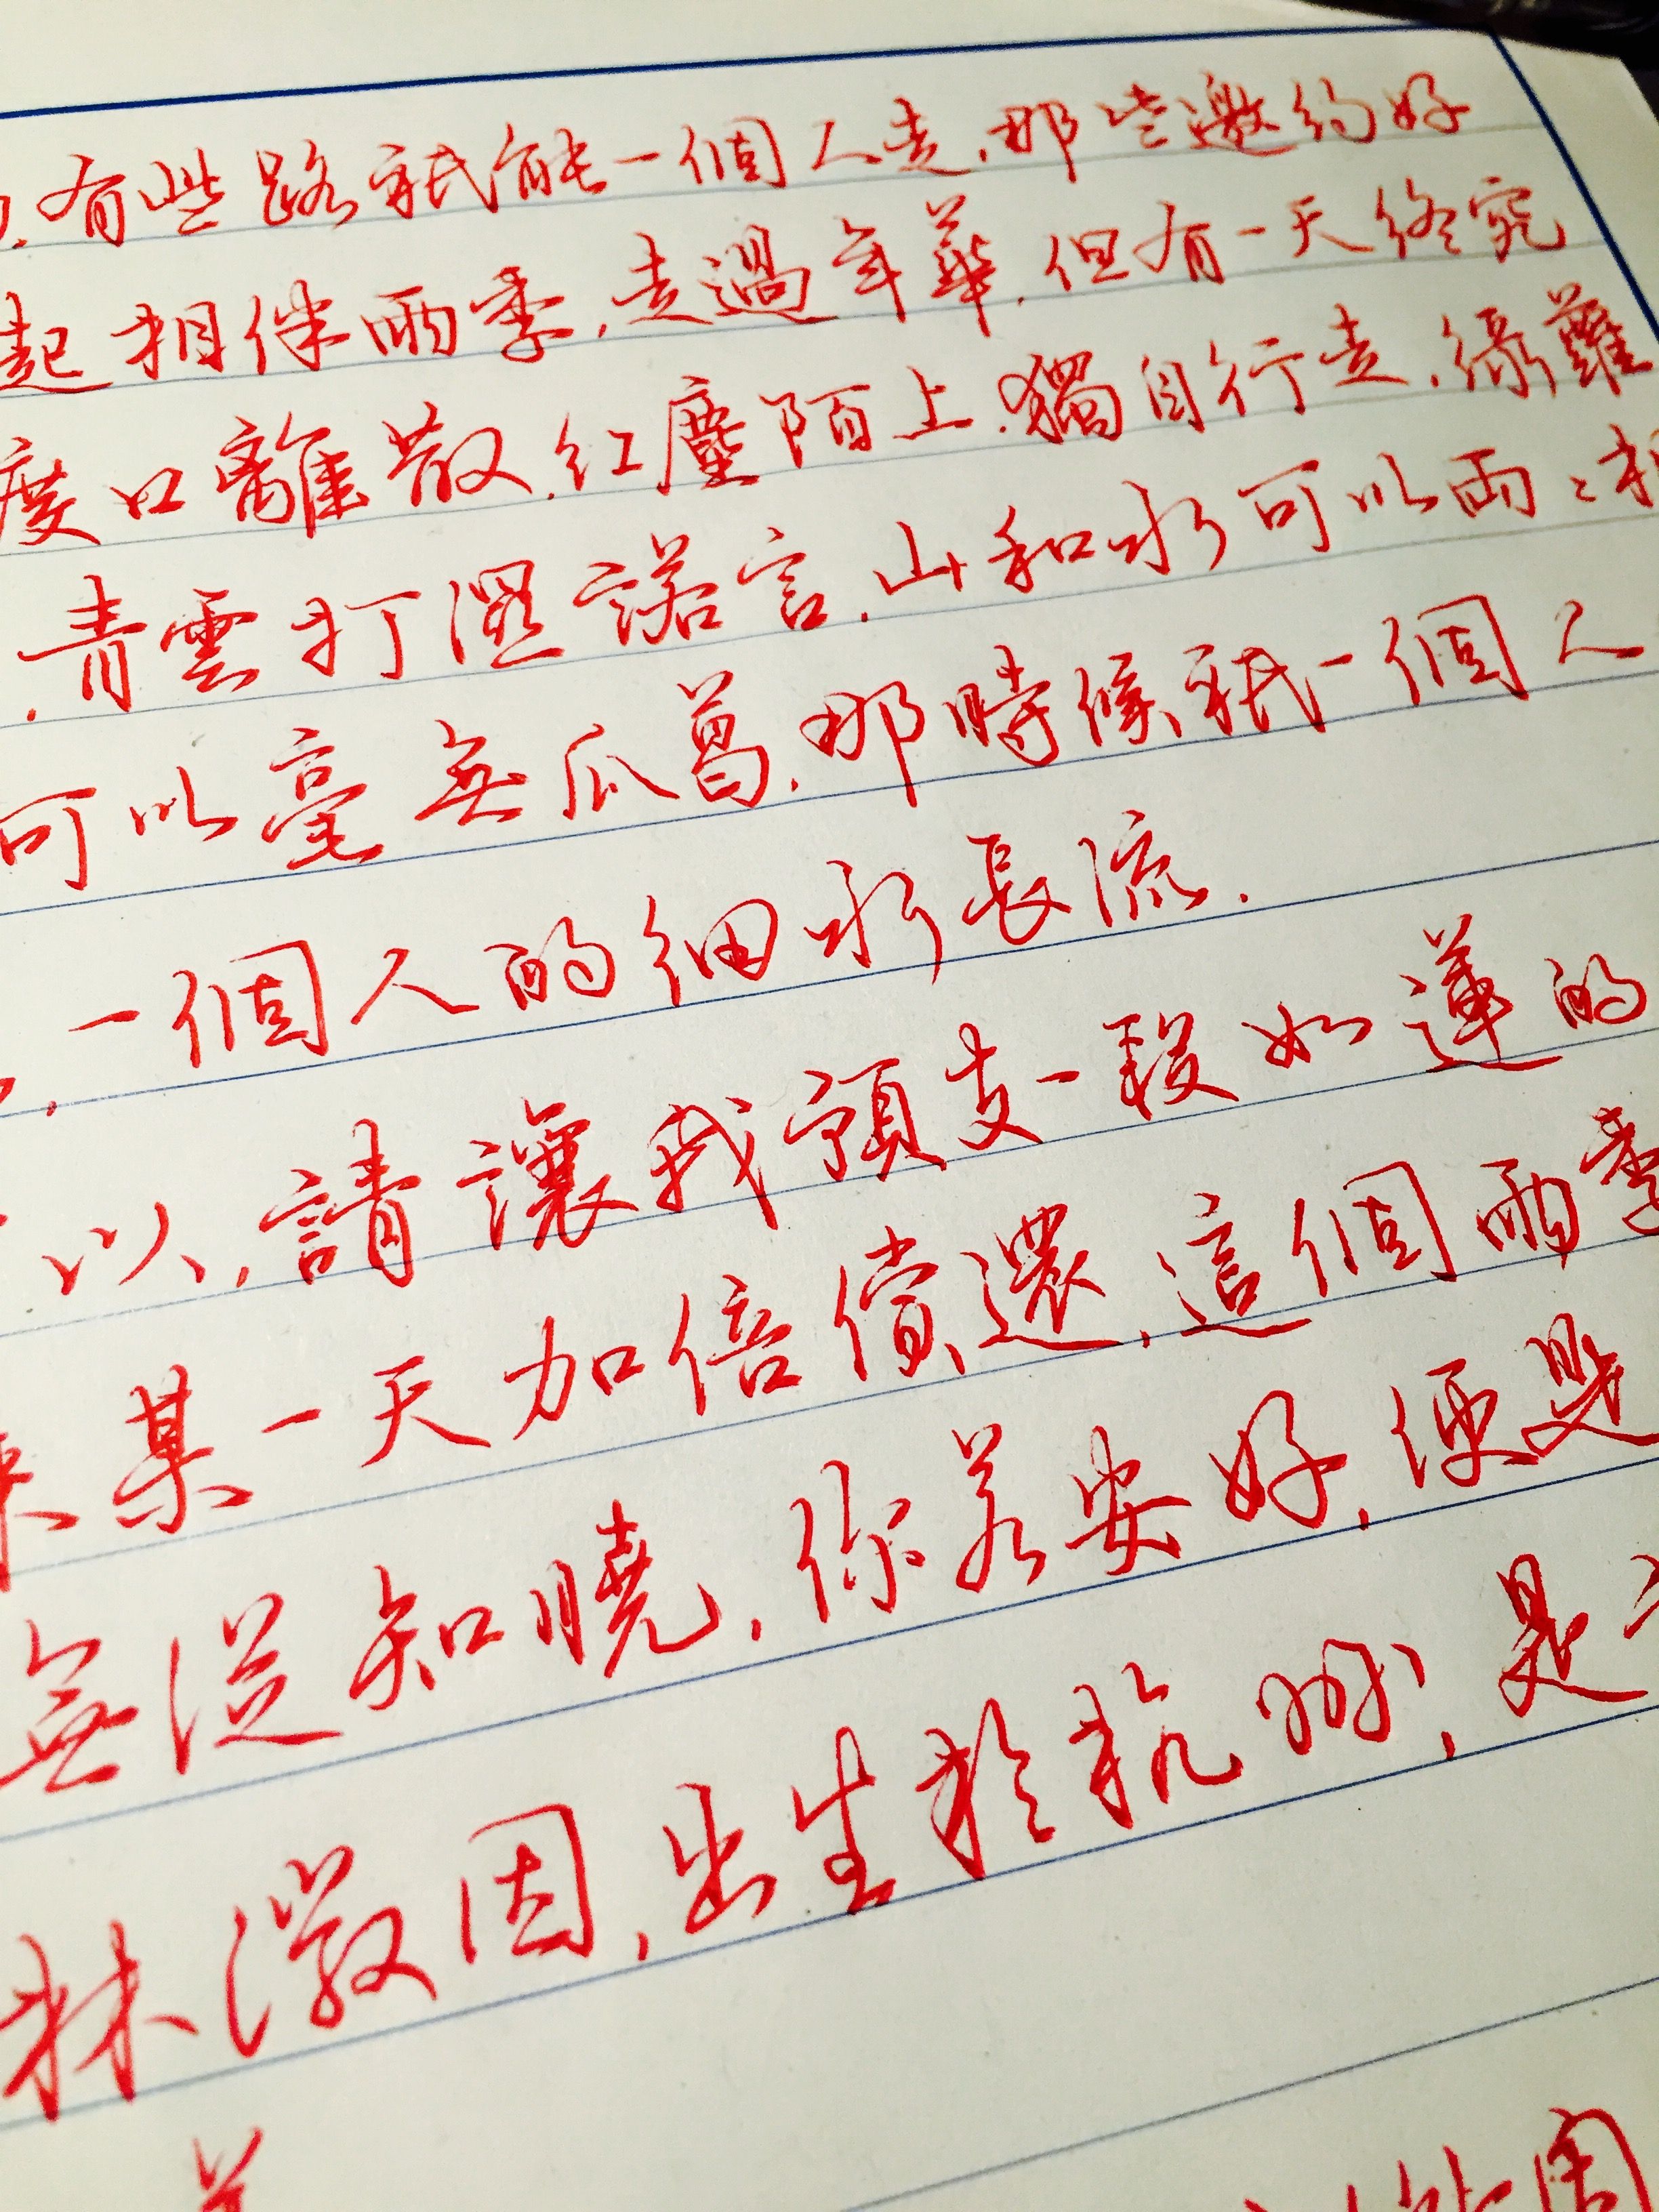 有些路祇能一個人走.那些邀約好
起相伴雨季,走過年華.但有一天終究
渡口離散.紅塵陌上.獨自行走.綠蘿
.青雲打濕諾言.山和水可以兩兩相
可以毫無瓜葛.那時候祇一個人
.一個人的細水長流.
以,請讓我預支一段如蓮的
來某一天加倍償還,這個雨季
無從知曉,你若安好,便是
林徽因,出生於杭州,是